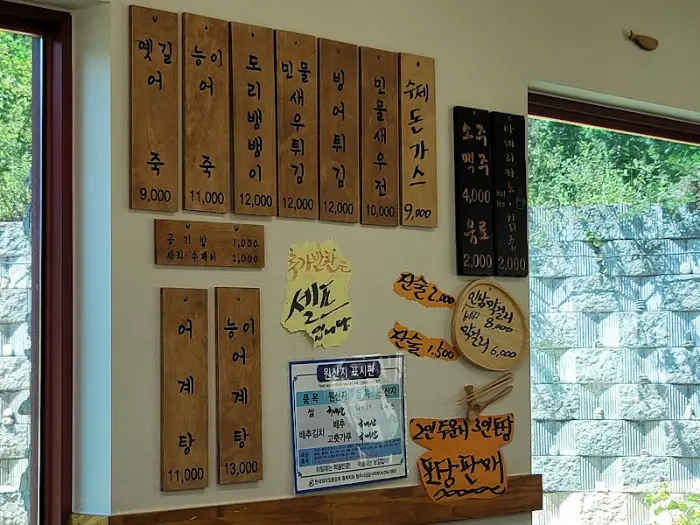 옛길
어
죽
9,000
능이
어
죽
11,000
도리뱅뱅이
12,000
민물새우튀김
12,000
빙어튀김
12,000
민물새우전
10,000
수제
돈가스
9,000
소주
맥주
4,000
음료
2,000
아메리카노
Hot
Ice
2,000
공기밥 1,000
사리 수제비 2,000
추가반찬은
셀프
입니다
잔술 2,000
잔술 1,500
인삼막걸리
8,000
막걸리 6,000
어
계
탕
11,000
능이
어
계
탕
13,000
원산지 표시판
품목 원산지
쌀 국내산
배추김치
배추 국내산
고춧가루 국내산
2인 주문시 3인
포장판매